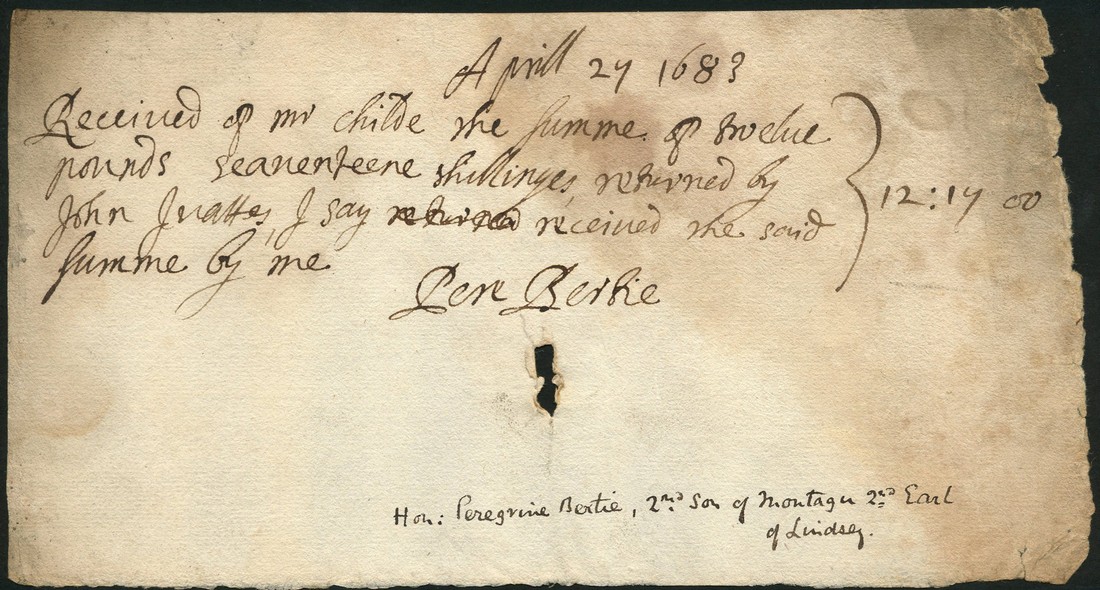 Aprill 27 1683
Received of mr Childe the summe of twelve
pounds seaventeene shillinges, returned by
John I say returned received the said
summe by me
12:17 00
Pere Bertie
Hon: Peregrine Bertie, 2nd Son of Montagu 2nd Earl
of Lindsey.